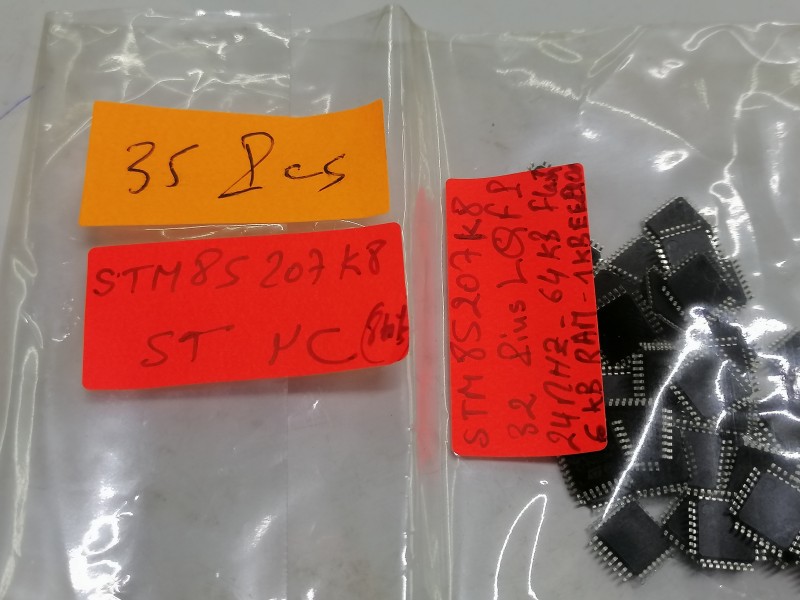 35 Pcs
STM8S207K8
ST µC (8bit
STM8S207K8
32 Pins LQFP
24MHZ - 64KB Flash
6KB RAM - 1KB EEPROM